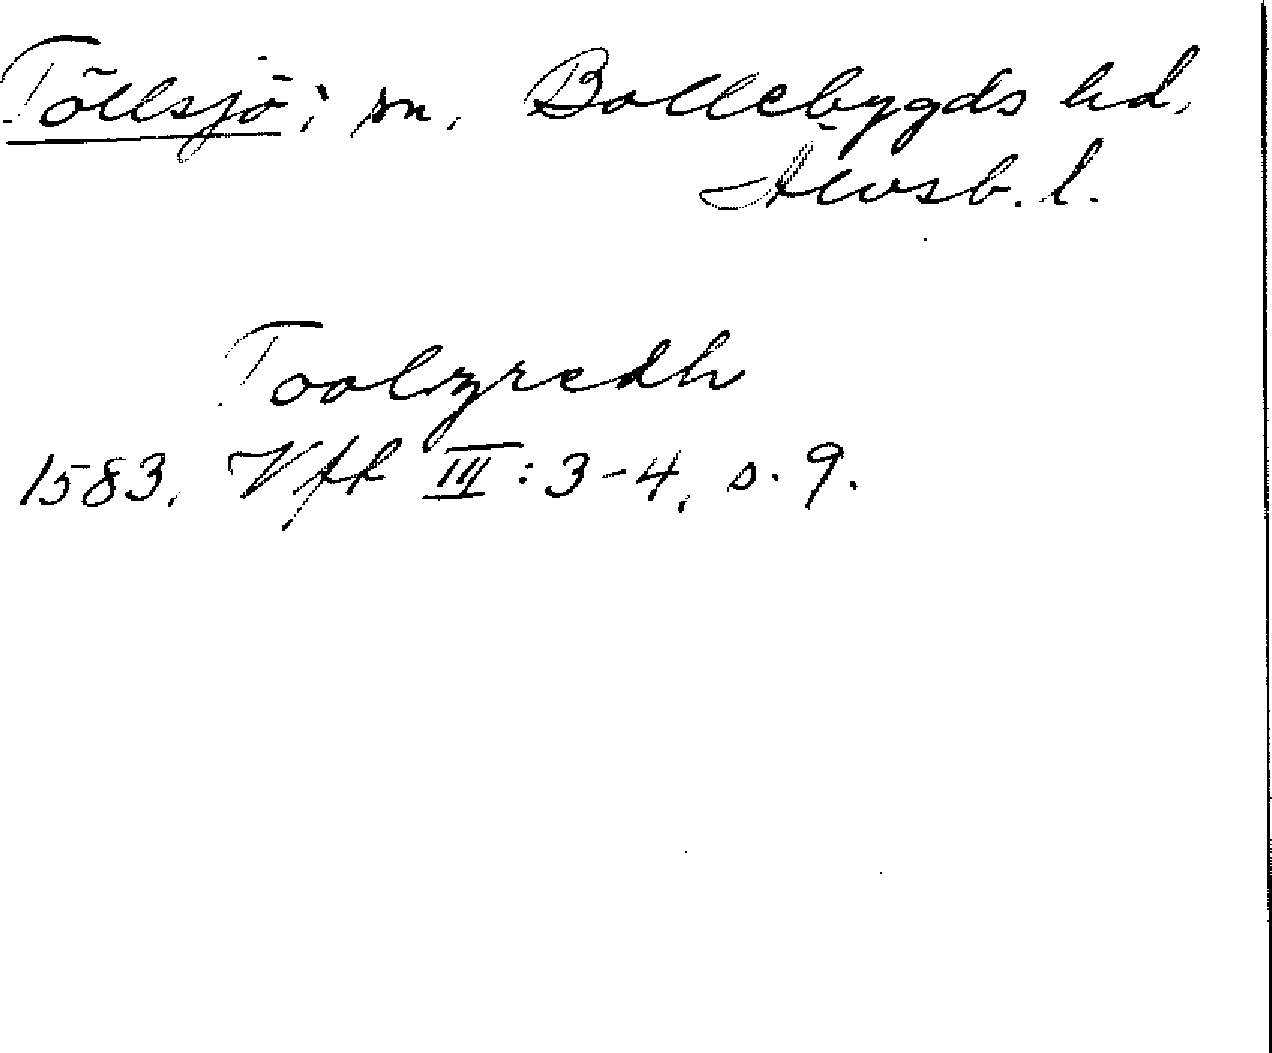 Töllsjö; sn, Bollebygds hd,
Älvsb. l.
Toolzredh
1583. Vff III: 3-4, s. 9.